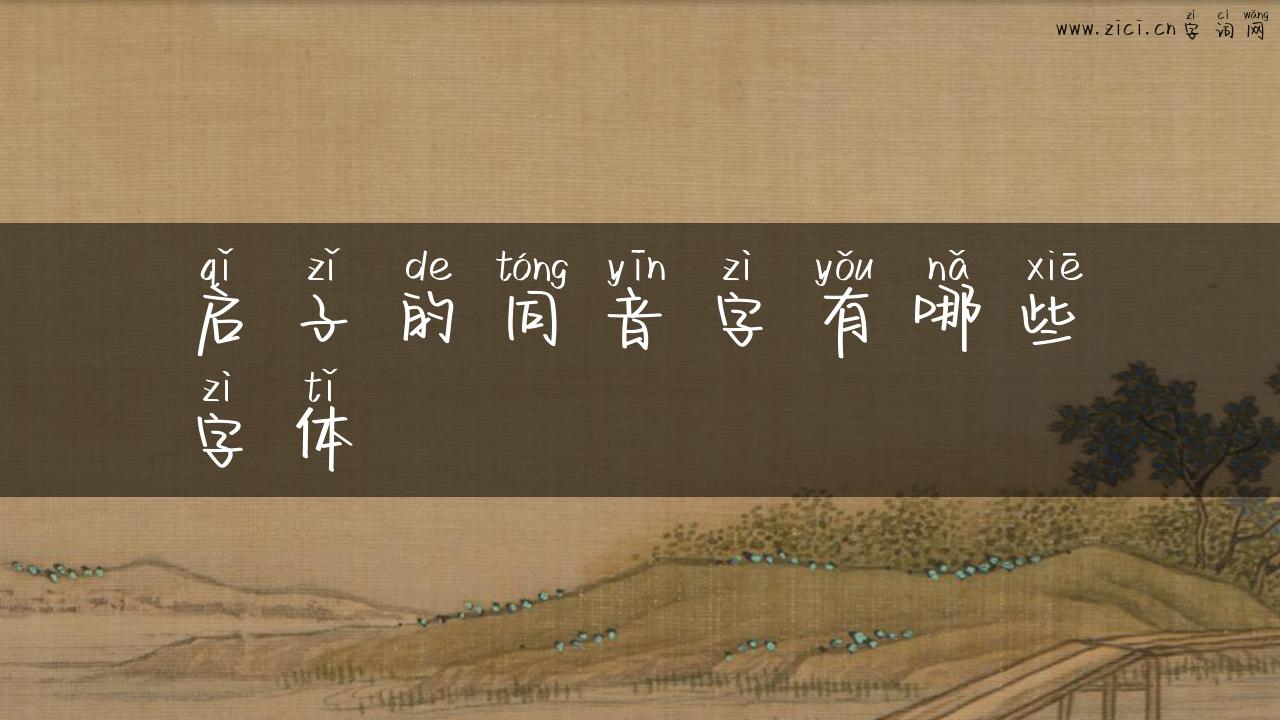 zì cí wǎng
www.zici.cn字词网
qǐ zǐ de tóng yīn zì yǒu nǎ xiē
启子的同音字有哪些
zì tǐ
字体